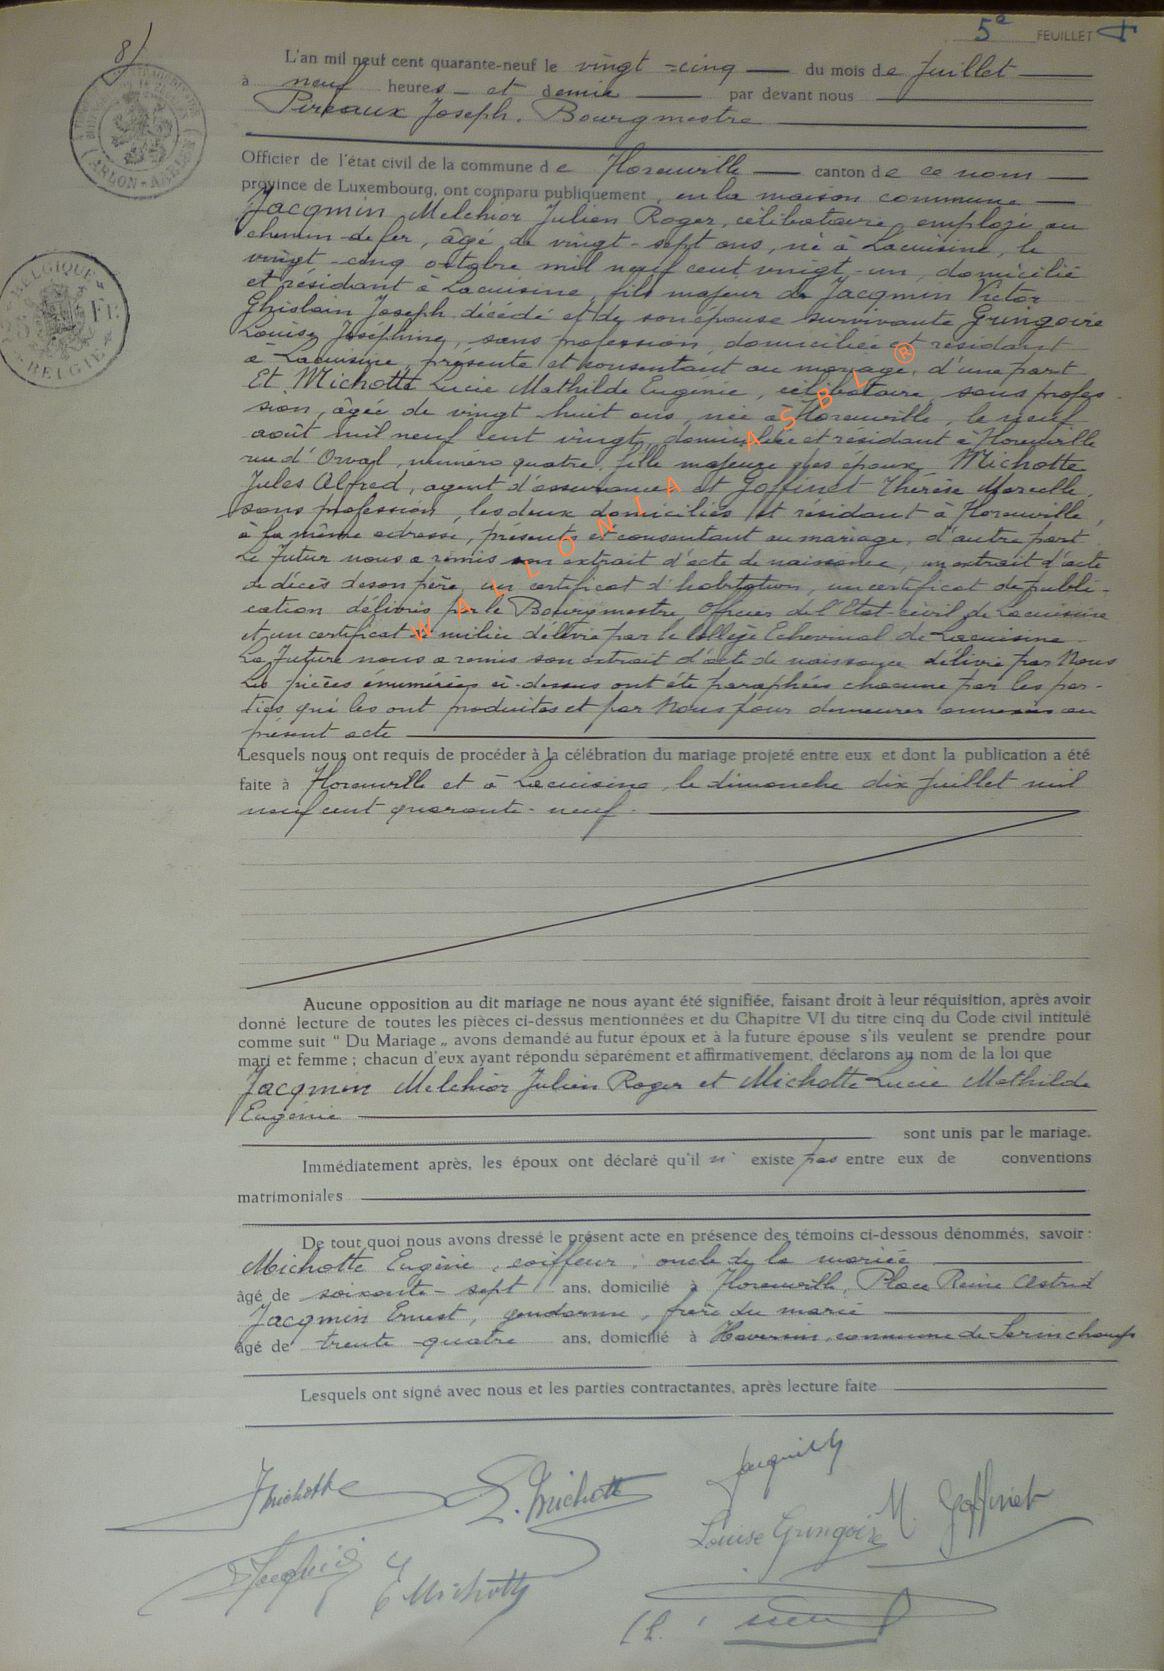 5e FEUILLET
8)
L'an mil neuf cent quarante-neuf le vingt-cinq du mois de Juillet
à neuf heures et demie par devant nous
Pireaux Joseph. Bourgmestre
Officier de l'état civil de la commune de Florenville canton de ce nom
province de Luxembourg, ont comparu publiquement, en la maison commune
Jacqmin Melchior Julien Roger, célibataire, employé au
chemin de fer, âgé de vingt-sept ans, né à Lacuisine, le
vingt-cinq octobre mil neuf cent vingt-un, domicilié
et résidant à Lacuisine, fils majeur de Jacqmin Victor
Ghislain Joseph décédé et de son épouse survivante Gringoire
Louise Joséphine, sans profession, domiciliée et résidant
à Lacuisine, présente et consentant au mariage, d'une part
Et Michotte Lucie Mathilde Eugénie, célibataire, sans profes-
sion, âgée de vingt-huit ans, née à Florenville, le neuf
août mil neuf cent vingt, domiciliée et résidant à Florenville
rue d'Orval, numéro quatre, fille majeure des époux Michotte
Jules Alfred, agent d'assurances et Goffinet Thérèse Marcelle,
sans profession, les deux domiciliés et résidant à Florenville,
à la même adresse, présents et consentant au mariage, d'autre part.
Le futur nous a remis son extrait d'acte de naissance, un extrait d'acte
de décès de son père, un certificat d'habitation, un certificat de publi-
cation délivrés par le Bourgmestre Officier de l'Etat civil de Lacuisine
et un certificat de milice délivré par le Collège Echevinal de Lacuisine.
La future nous a remis son extrait d'acte de naissance délivré par Nous
Les pièces énumérées ci-dessus ont été paraphées chacune par les par-
ties qui les ont produites et par Nous pour demeurer annexées au
présent acte
Lesquels nous ont requis de procéder à la célébration du mariage projeté entre eux et dont la publication a été
faite à Florenville et à Lacuisine, le dimanche dix Juillet mil
neuf cent quarante-neuf.
Aucune opposition au dit mariage ne nous ayant été signifiée, faisant droit à leur réquisition, après avoir
donné lecture de toutes les pièces ci-dessus mentionnées et du Chapitre VI du titre cinq du Code civil intitulé
comme suit “ Du Mariage „ avons demandé au futur époux et à la future épouse s'ils veulent se prendre pour
mari et femme ; chacun d'eux ayant répondu séparément et affirmativement, déclarons au nom de la loi que
Jacqmin Melchior Julien Roger et Michotte Lucie Mathilde
Eugénie
sont unis par le mariage.
Immédiatement après, les époux ont déclaré qu'il n' existe pas entre eux de conventions
matrimoniales
De tout quoi nous avons dressé le présent acte en présence des témoins ci-dessous dénommés, savoir :
Michotte Eugène, coiffeur, oncle de la mariée
âgé de soixante-sept ans, domicilié à Florenville, Place Reine Astrid
Jacqmin Ernest, gendarme, frère du marié
âgé de trente-quatre ans, domicilié à Haversin, commune de Serinchamps
Lesquels ont signé avec nous et les parties contractantes, après lecture faite
JMichotte L. Michotte Jacqmin
Louise Gringoire M. Goffinet
E Michotte
ARLON-AARLEN
BELGIQUE
BELGIE
WALLONIA ASBL ®